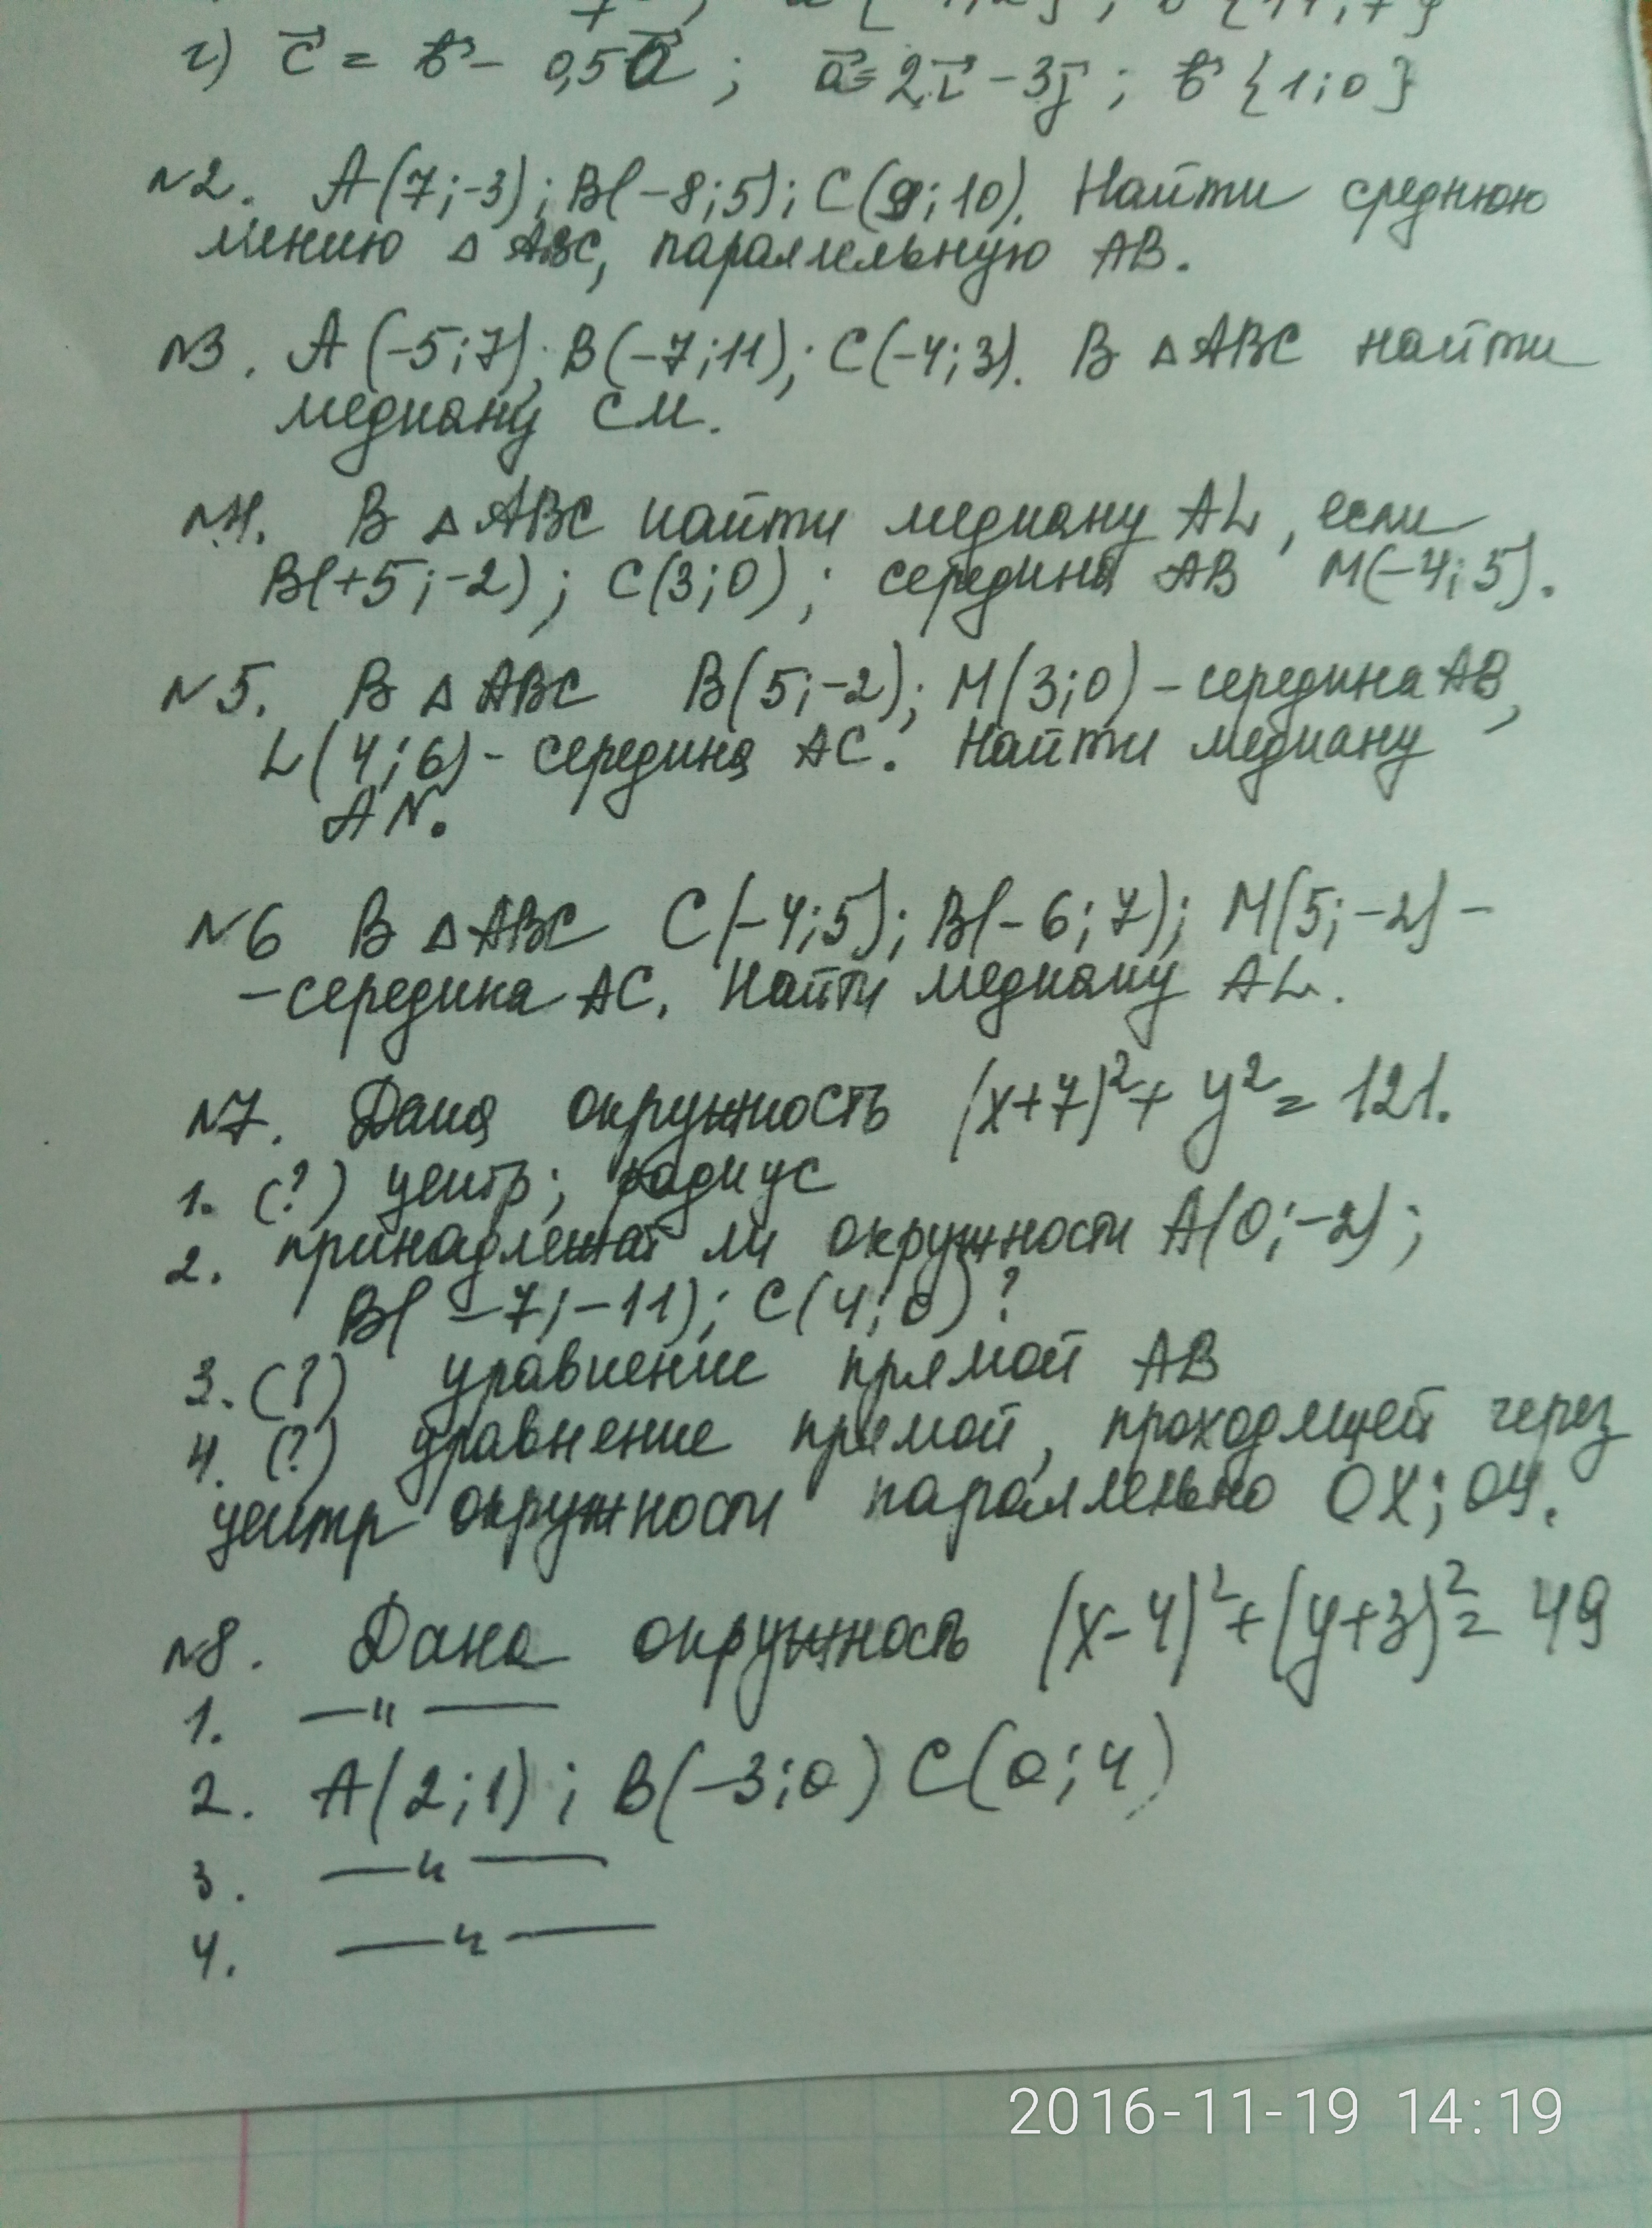 г) c⃗ = b⃗ - 0,5a⃗ ; a⃗ = 2i⃗ - 3j⃗ ; b⃗ {1;0}
№2. A(7;-3); B(-8;5); C(9;10). Найти среднюю
линию △ ABC, параллельную AB.
№3. A(-5;7); B(-7;11); C(-4;3). В △ABC найти
медиану CM.
№4. В △ABC найти медиану AL, если
B(+5;-2); C(3;0); середина AB M(-4;5).
№5. В △ ABC B(5;-2); M(3;0) - середина AB,
L(4;6) - середина AC. Найти медиану
AN.
№6 В △ABC C(-4;5); B(-6;7); M(5;-2) -
- середина AC. Найти медиану AL.
№7. Дана окружность (x+7)²+ y² = 121.
1. (?) центр; радиус
2. принадлежат ли окружности A(0;-2);
B(-7;-11); C(4;0)?
3. (?) уравнение прямой AB
4. (?) уравнение прямой, проходящей через
центр окружности параллельно OX; OY.
№8. Дана окружность (x-4)²+(y+3)²= 49
1. —"—
2. A(2;1); B(-3;0) C(0;4)
3. —"—
4. —"—
2016-11-19 14:19